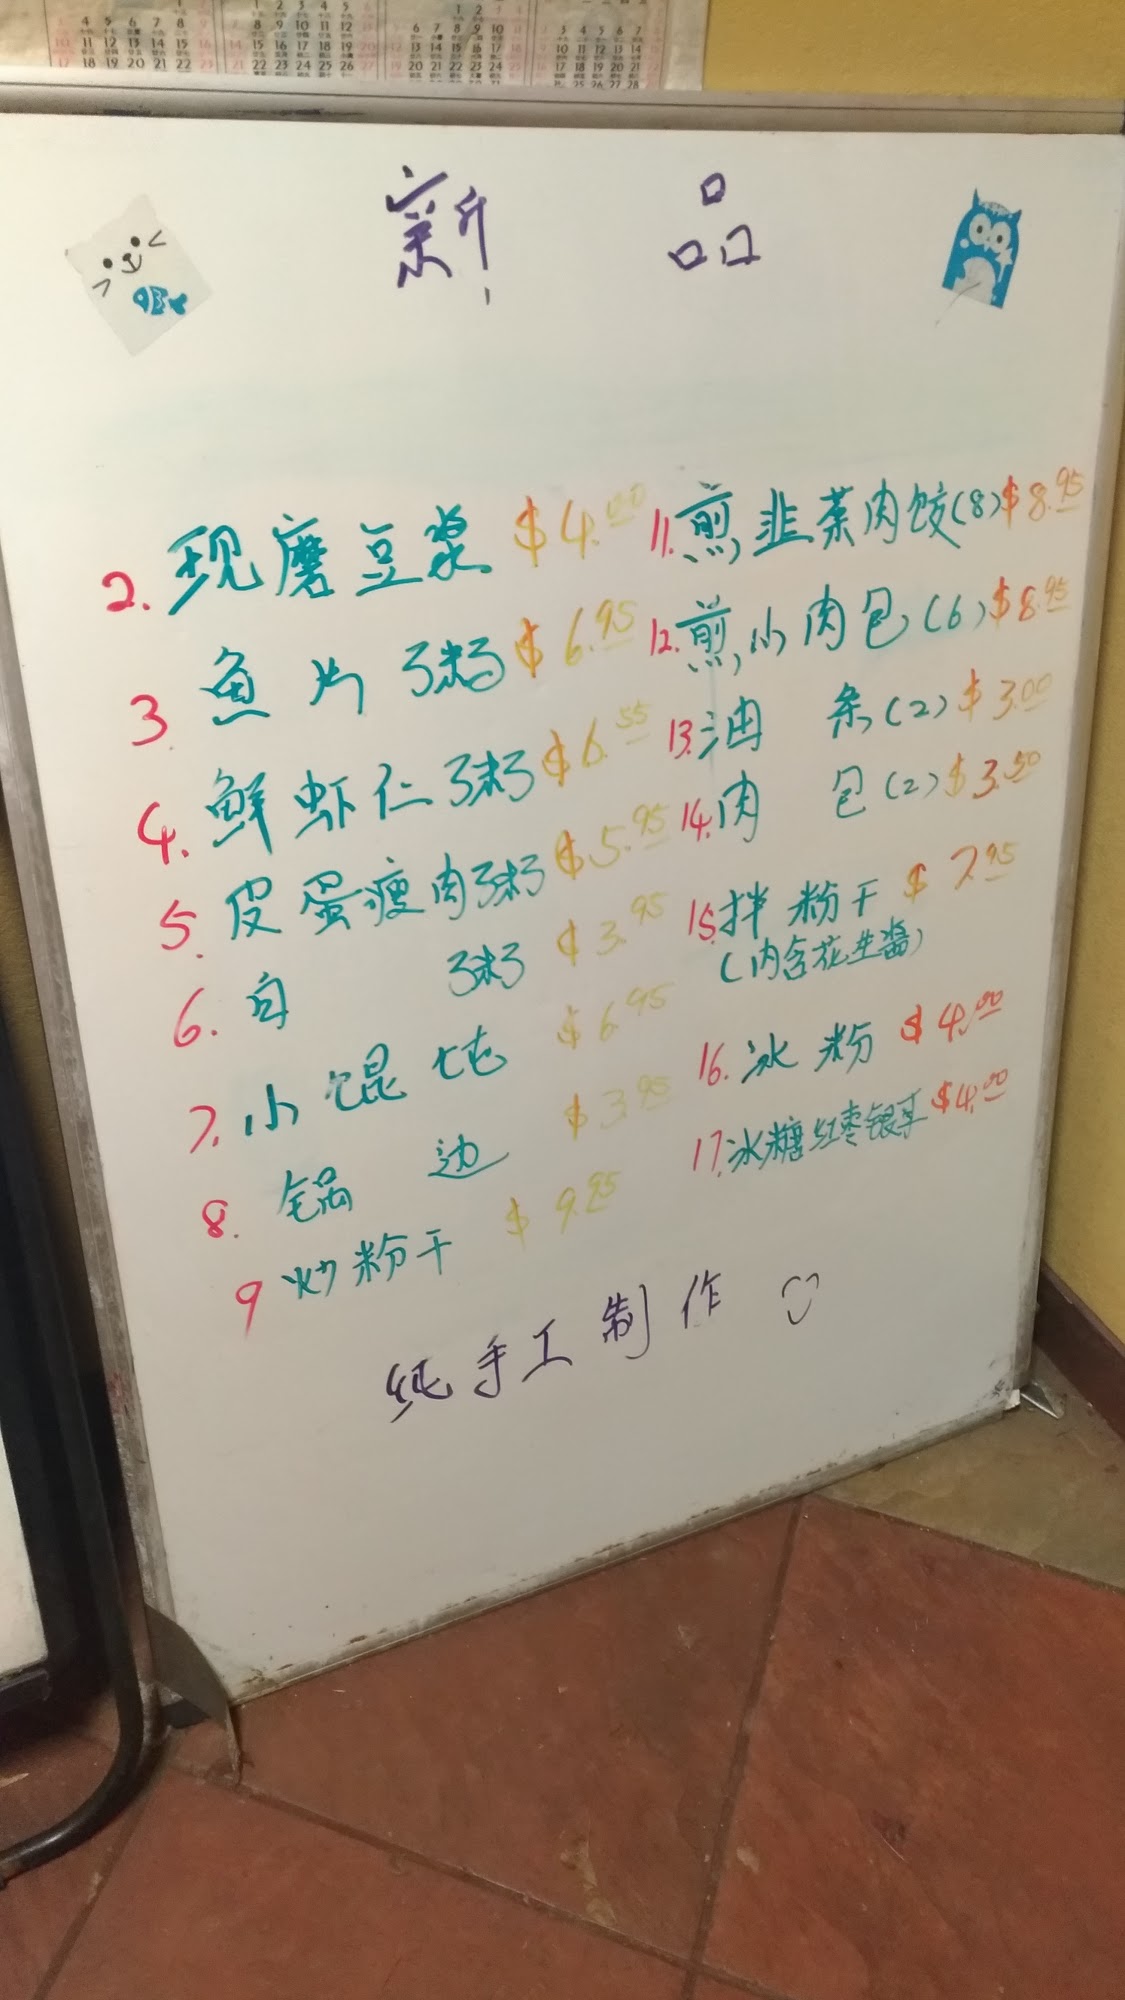 新 品
2. 现磨豆浆 $4.00
3. 鱼片粥 $6.95
4. 鲜虾仁粥 $6.55
5. 皮蛋瘦肉粥 $5.95
6. 白 粥 $3.95
7. 小馄饨 $6.95
8. 锅 边 $3.95
9 炒粉干 $9.95
11. 煎韭菜肉饺(8) $8.95
12. 煎小肉包(6) $8.95
13. 油 条(2) $3.00
14. 肉 包(2) $3.50
15. 拌粉干 $7.95
(内含花生酱)
16. 冰粉 $4.00
17. 冰糖红枣银耳 $4.00
纯手工制作